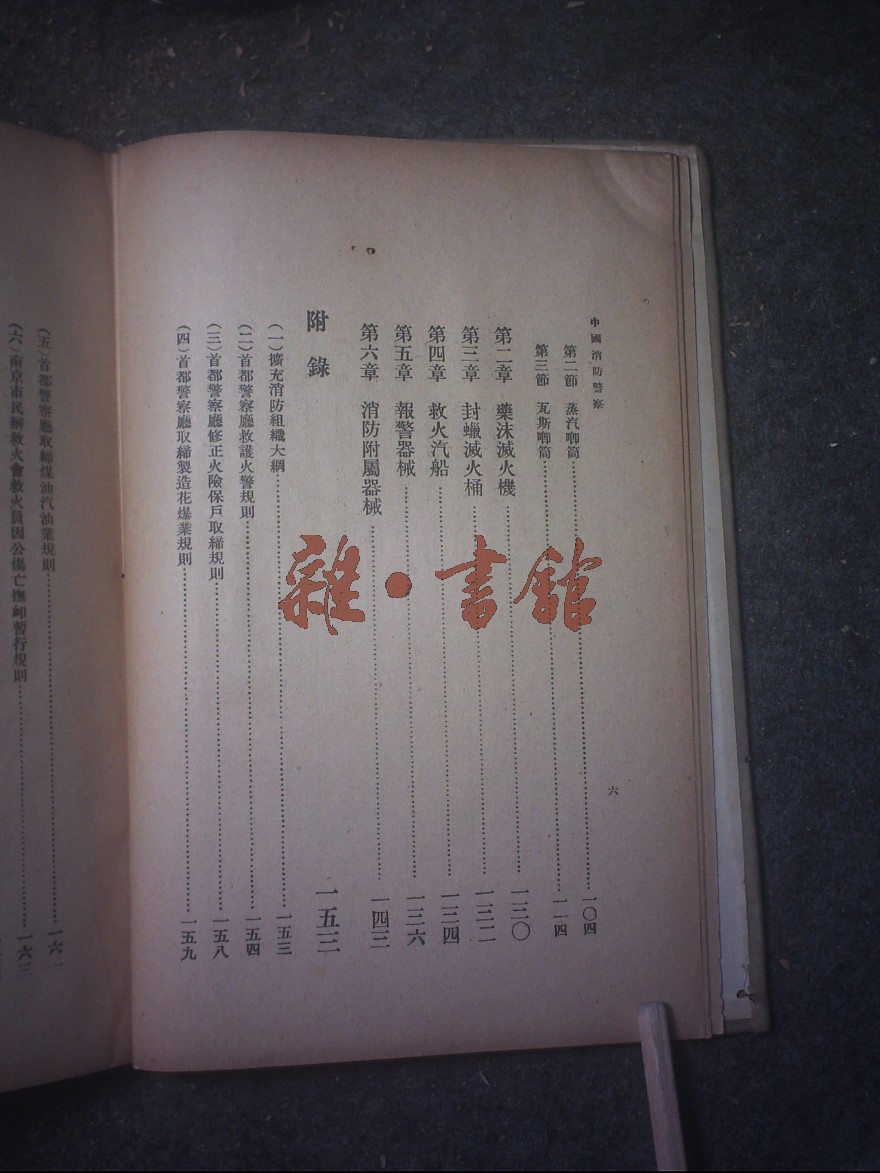 中國消防警察
六
第二節　蒸汽唧筒…………一〇四
第三節　瓦斯唧筒…………一一四
第二章　藥沫滅火機…………一二〇
第三章　封蠟滅火桶…………一三二
第四章　救火汽船…………一三四
第五章　報警器械…………一三六
第六章　消防附屬器械…………一四三
附錄　一五三
(一)擴充消防組織大綱…………一五三
(二)首都警察廳救護火警規則…………一五四
(三)首都警察廳修正火險保戶取締規則…………一五八
(四)首都警察廳取締製造花爆業規則…………一五九
(五)首都警察廳取締煤油汽油業規則…………一六一
(六)南京市民辦救火會救火員因公傷亡撫卹暫行規則…………一六三
雜·書館